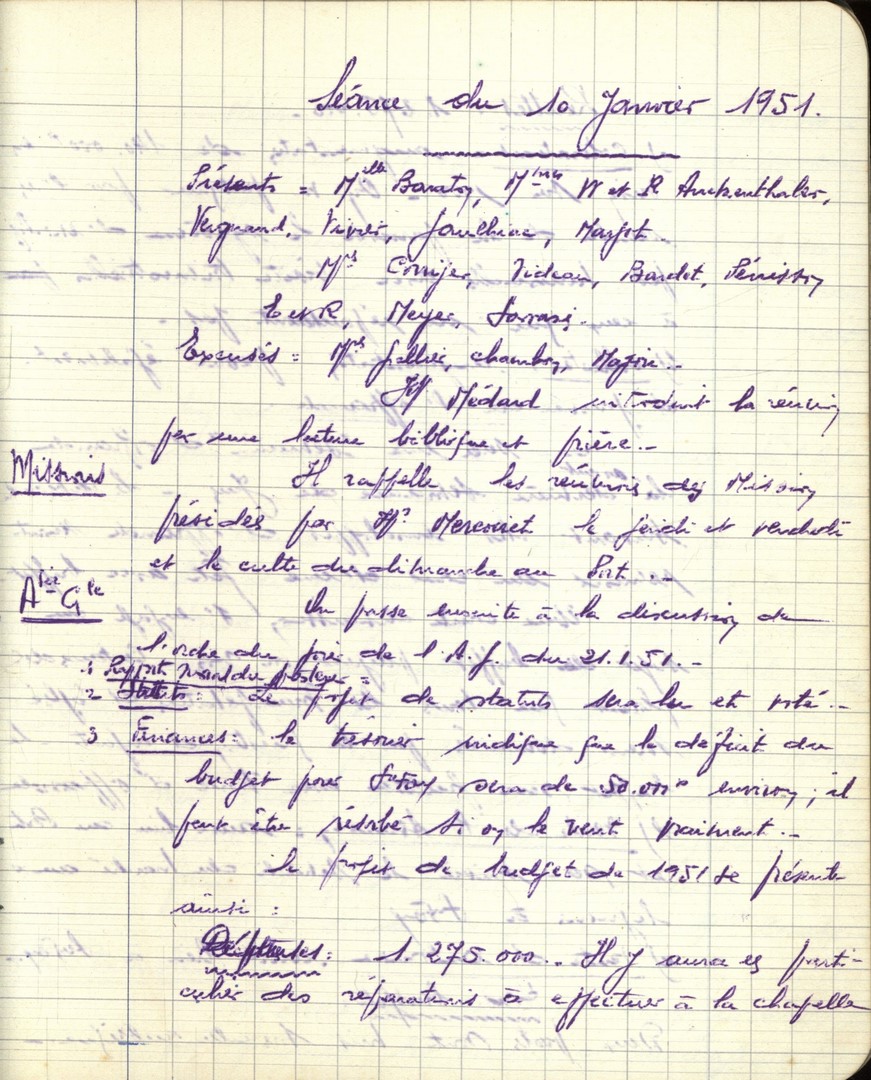 Séance du 10 Janvier 1951.
Présents = Melle Baratoy, Mmes W et R Anckenthaler,
Vergnaud, Vivier, Gaulhiac, Margot.
Mrs Corrijer, Videau, Bardet, Sénissoy
E et R, Meyer, Sarrasi.
Excusés = Mrs Gellier, Chambon, Majou.
Mr Médard introduit la réunion
par une lecture biblique et prière.-
Missions
Il rappelle les réunions des Missions
présidés par Mr Mercoiret le jeudi et vendredi
et le culte du dimanche au Port.-
Alée Gle
On passe ensuite à la discussion de
l'ordre du jour de l'A.G. du 21.1.51.-
1 Rapport moral du pasteur =
2 Statuts: Le projet de statuts sera lu et voté.-
3 Finances: le trésorier indique que le déficit du
budget pour Ste Foy sera de 50.000 environ; il
peut être résorbé si on le veut vraiment.-
le projet de budget de 1951 se présente
ainsi :
Dépenses: 1.275.000.. Il y aura en parti-
culier des réparations à effectuer à la chapelle